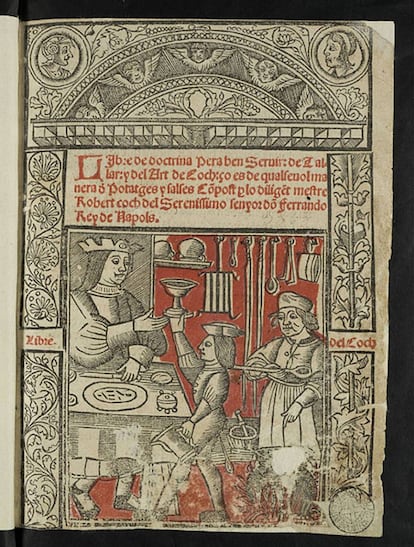 Libre de doctrina Pera ben Seruir: de Tal
lar: y del Art de Coch: ço es de qualseuol ma
nera ð Potatges y salses Cõpost p lo diligẽt mestre
Robert coch del Serenissimo senyor dõ Ferrando
Rey de Napols.
Libre. del Coch